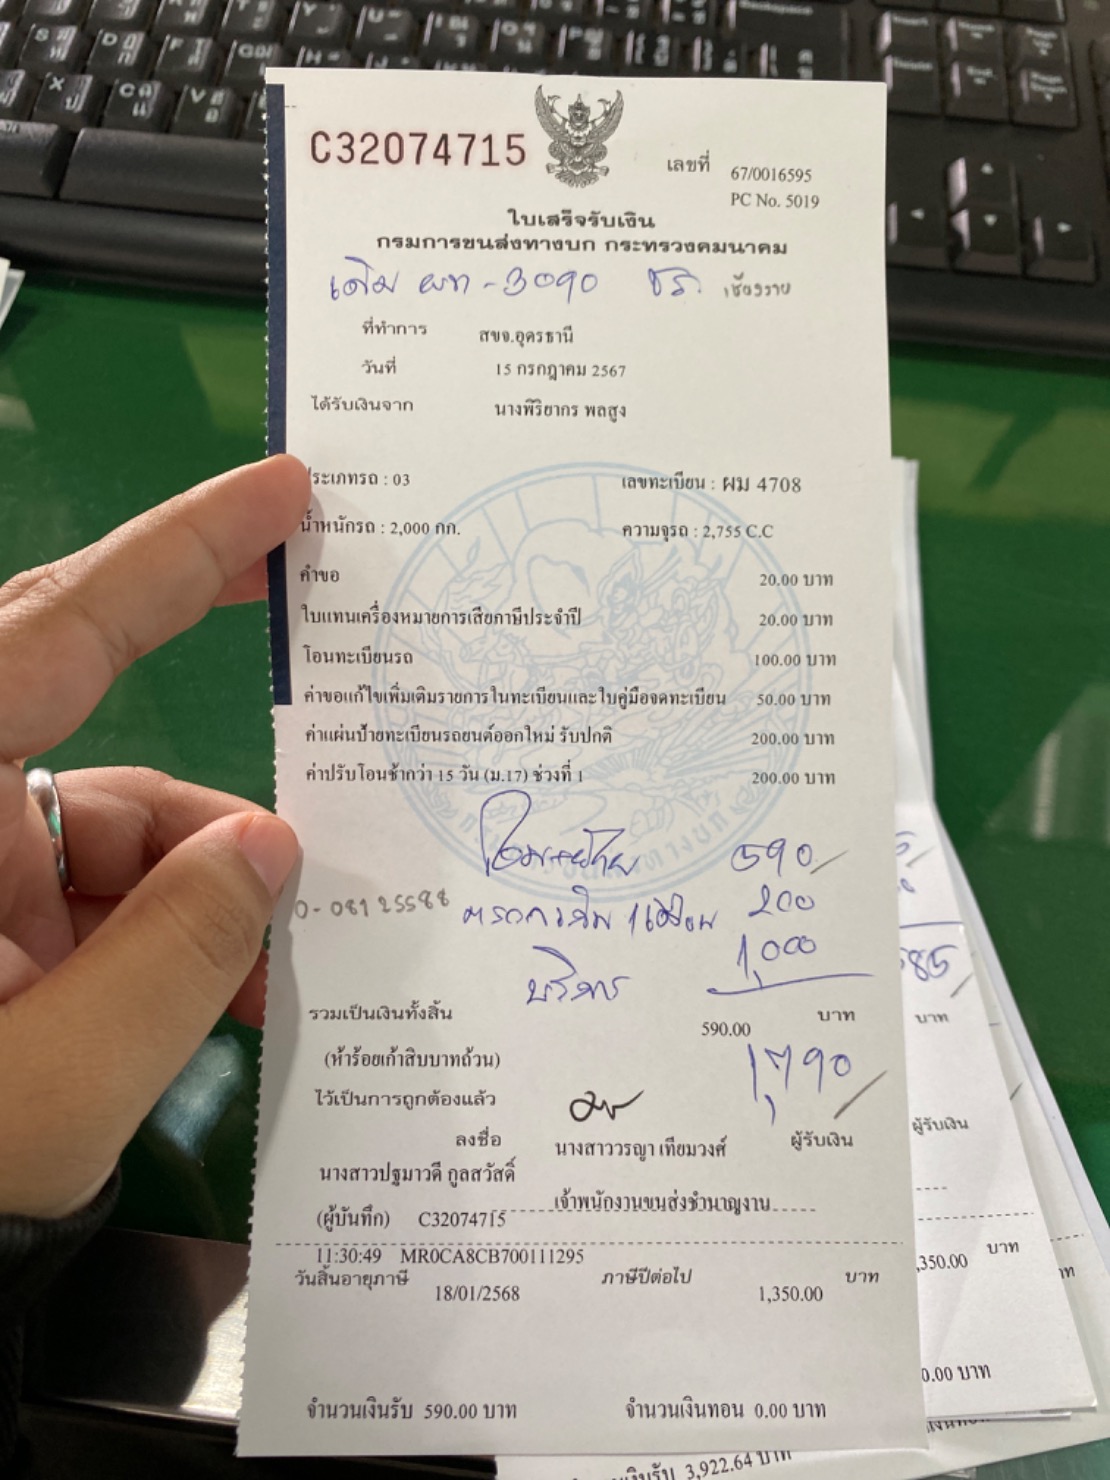 C32074715
เลขที่ 67/0016595
PC No. 5019
ใบเสร็จรับเงิน
กรมการขนส่งทางบก กระทรวงคมนาคม
เดิม ผก - 3090 ชร. เชียงราย
ที่ทำการ สขจ.อุดรธานี
วันที่ 15 กรกฎาคม 2567
ได้รับเงินจาก นางพิริยากร พลสูง
ประเภทรถ : 03 เลขทะเบียน : ผม 4708
น้ำหนักรถ : 2,000 กก. ความจุรถ : 2,755 C.C
คำขอ 20.00 บาท
ใบแทนเครื่องหมายการเสียภาษีประจำปี 20.00 บาท
โอนทะเบียนรถ 100.00 บาท
ค่าขอแก้ไขเพิ่มเติมรายการในทะเบียนและใบคู่มือจดทะเบียน 50.00 บาท
ค่าแผ่นป้ายทะเบียนรถยนต์ออกใหม่ รับปกติ 200.00 บาท
ค่าปรับโอนช้ากว่า 15 วัน (ม.17) ช่วงที่ 1 200.00 บาท
590
200
บริการ 1,000
รวมเป็นเงินทั้งสิ้น 590.00 บาท
(ห้าร้อยเก้าสิบบาทถ้วน) 1,790
ไว้เป็นการถูกต้องแล้ว
ลงชื่อ นางสาววรญา เทียมวงศ์ ผู้รับเงิน
นางสาวปฐมาวดี กูลสวัสดิ์
เจ้าพนักงานขนส่งชำนาญงาน
(ผู้บันทึก) C32074715
11:30:49 MR0CA8CB700111295
วันสิ้นอายุภาษี 18/01/2568 ภาษีปีต่อไป 1,350.00 บาท
จำนวนเงินรับ 590.00 บาท จำนวนเงินทอน 0.00 บาท
585
บาท
ผู้รับเงิน
,350.00 บาท
0.00 บาท
3,922.64 บาท